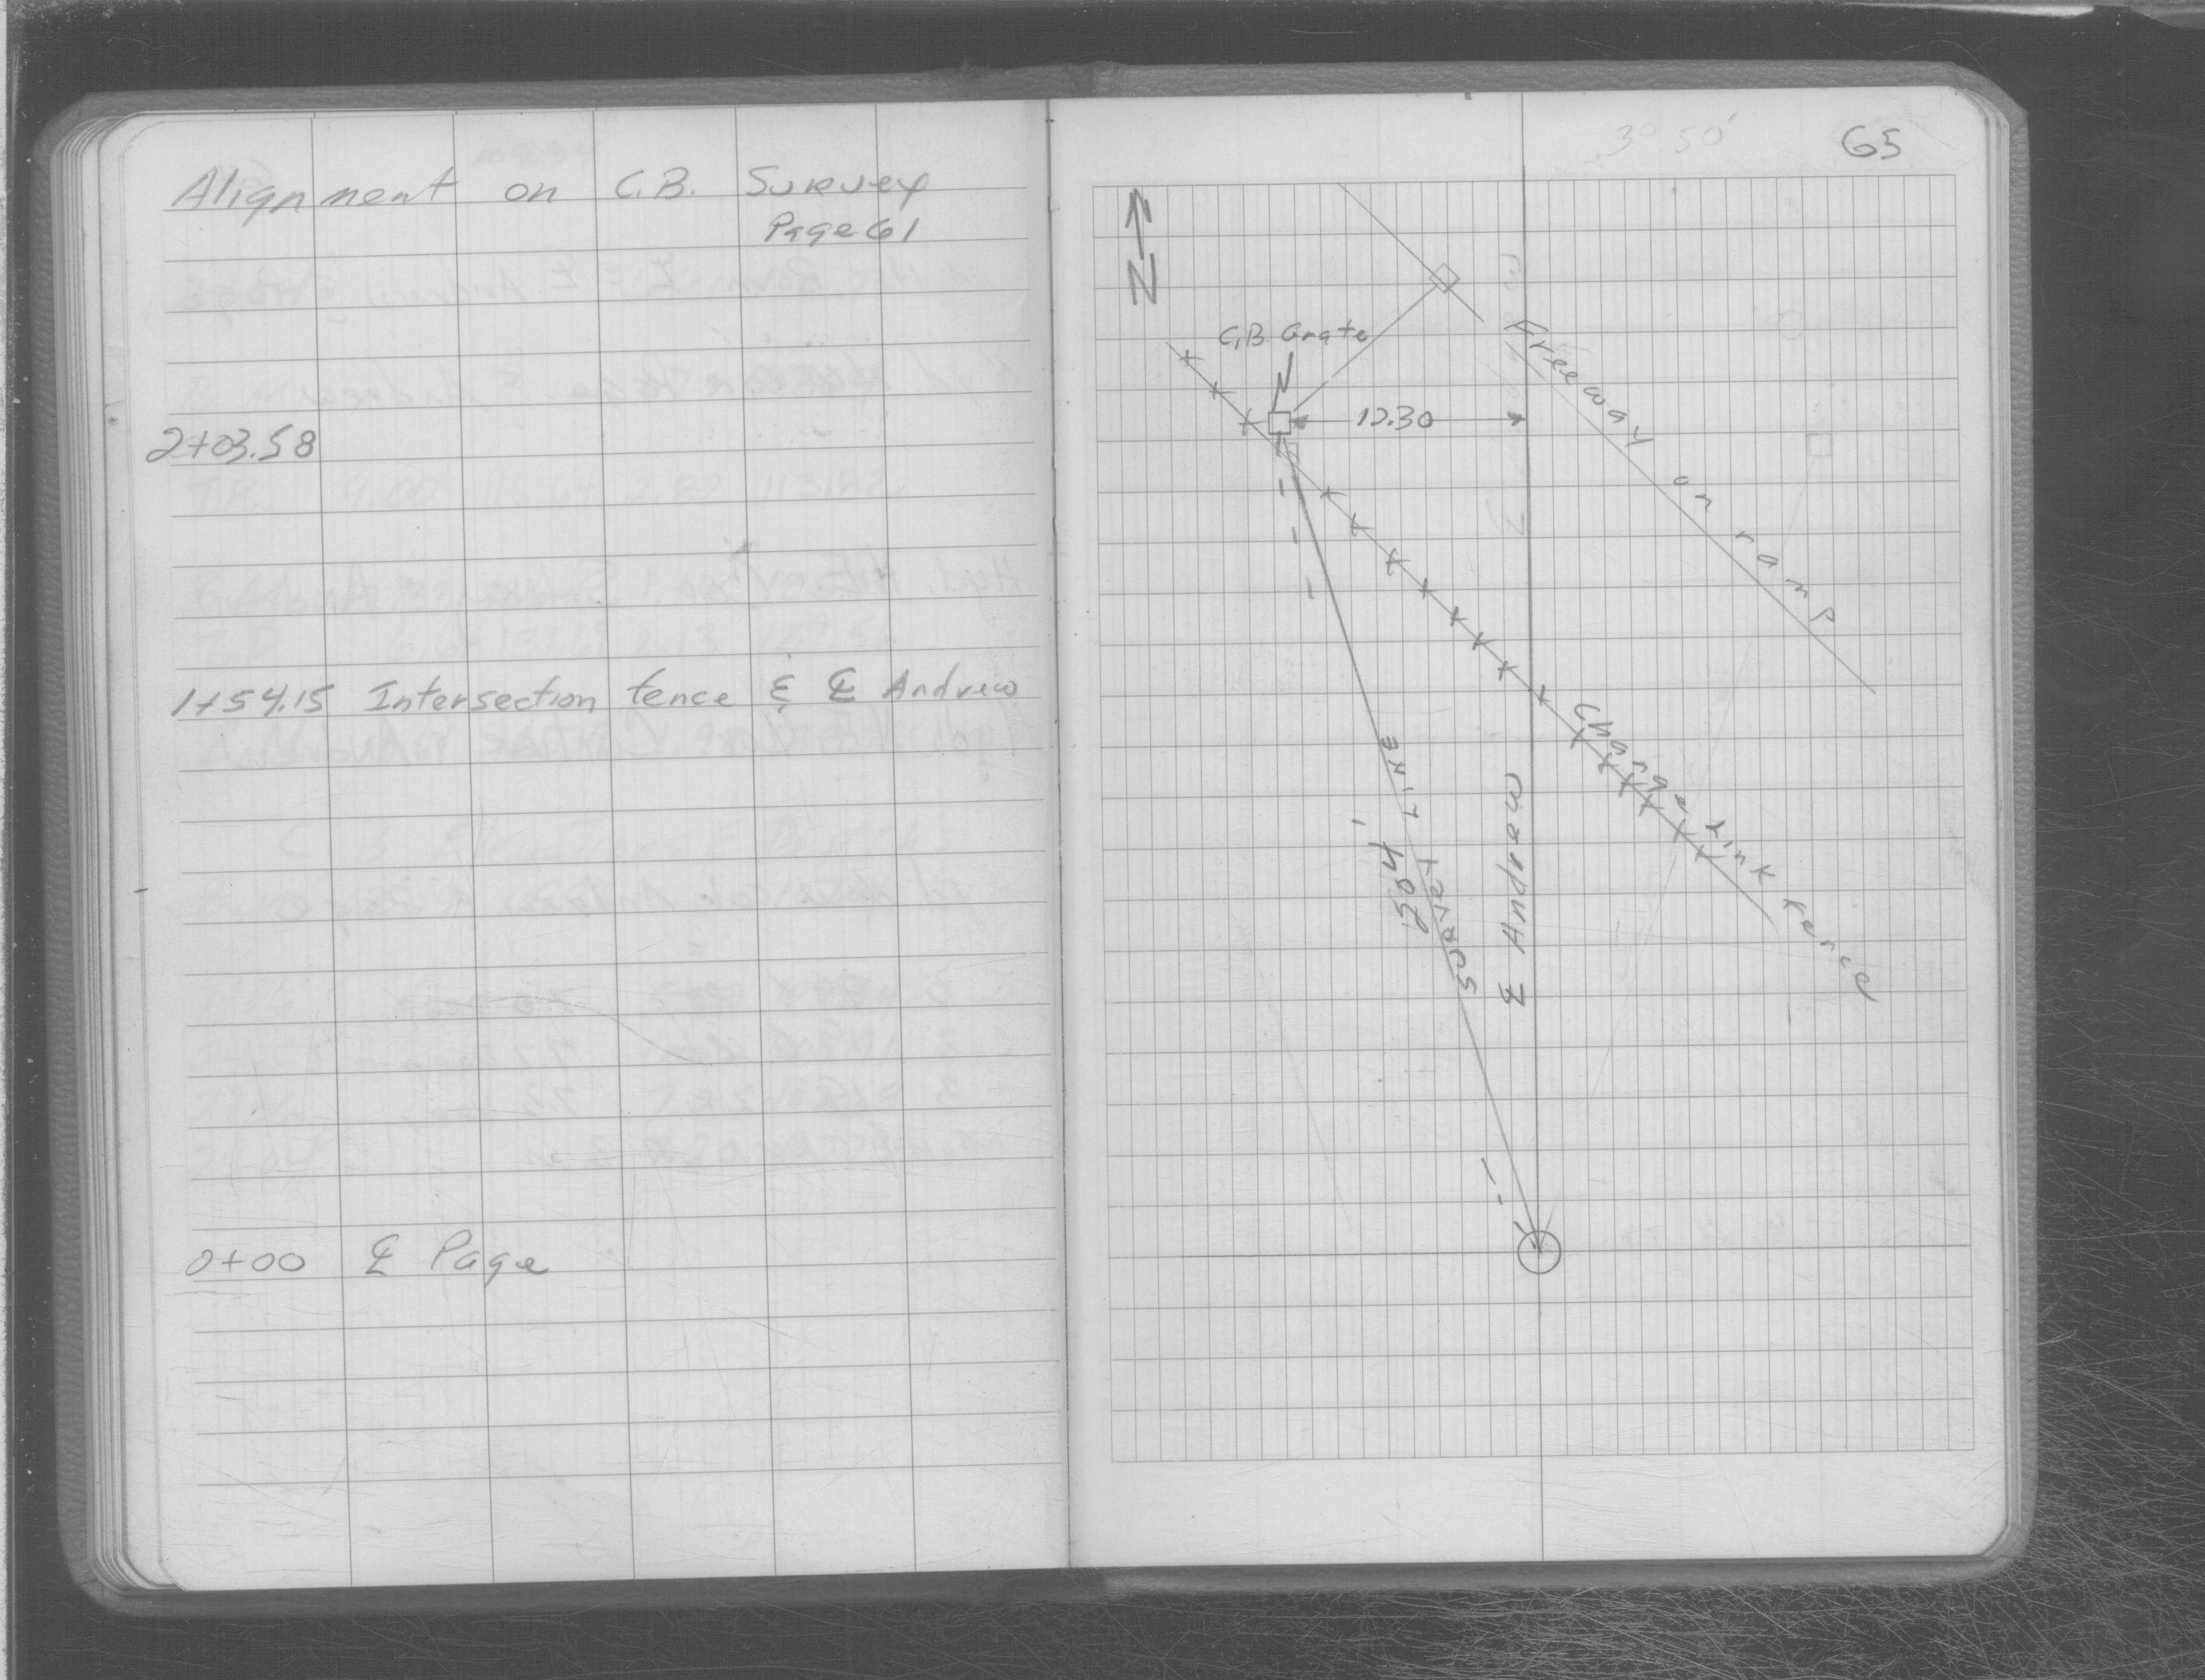 Alignment on C.B. Survey
Page 61
2+03.58
1+54.15 Intersection fence & ℄ Andrew
0+00 ℄ Page
65
3° 50'
N
C.B. Grate
12.30
Freeway on ramp
Change link fence
204'
SURVEY LINE
℄ Andrew